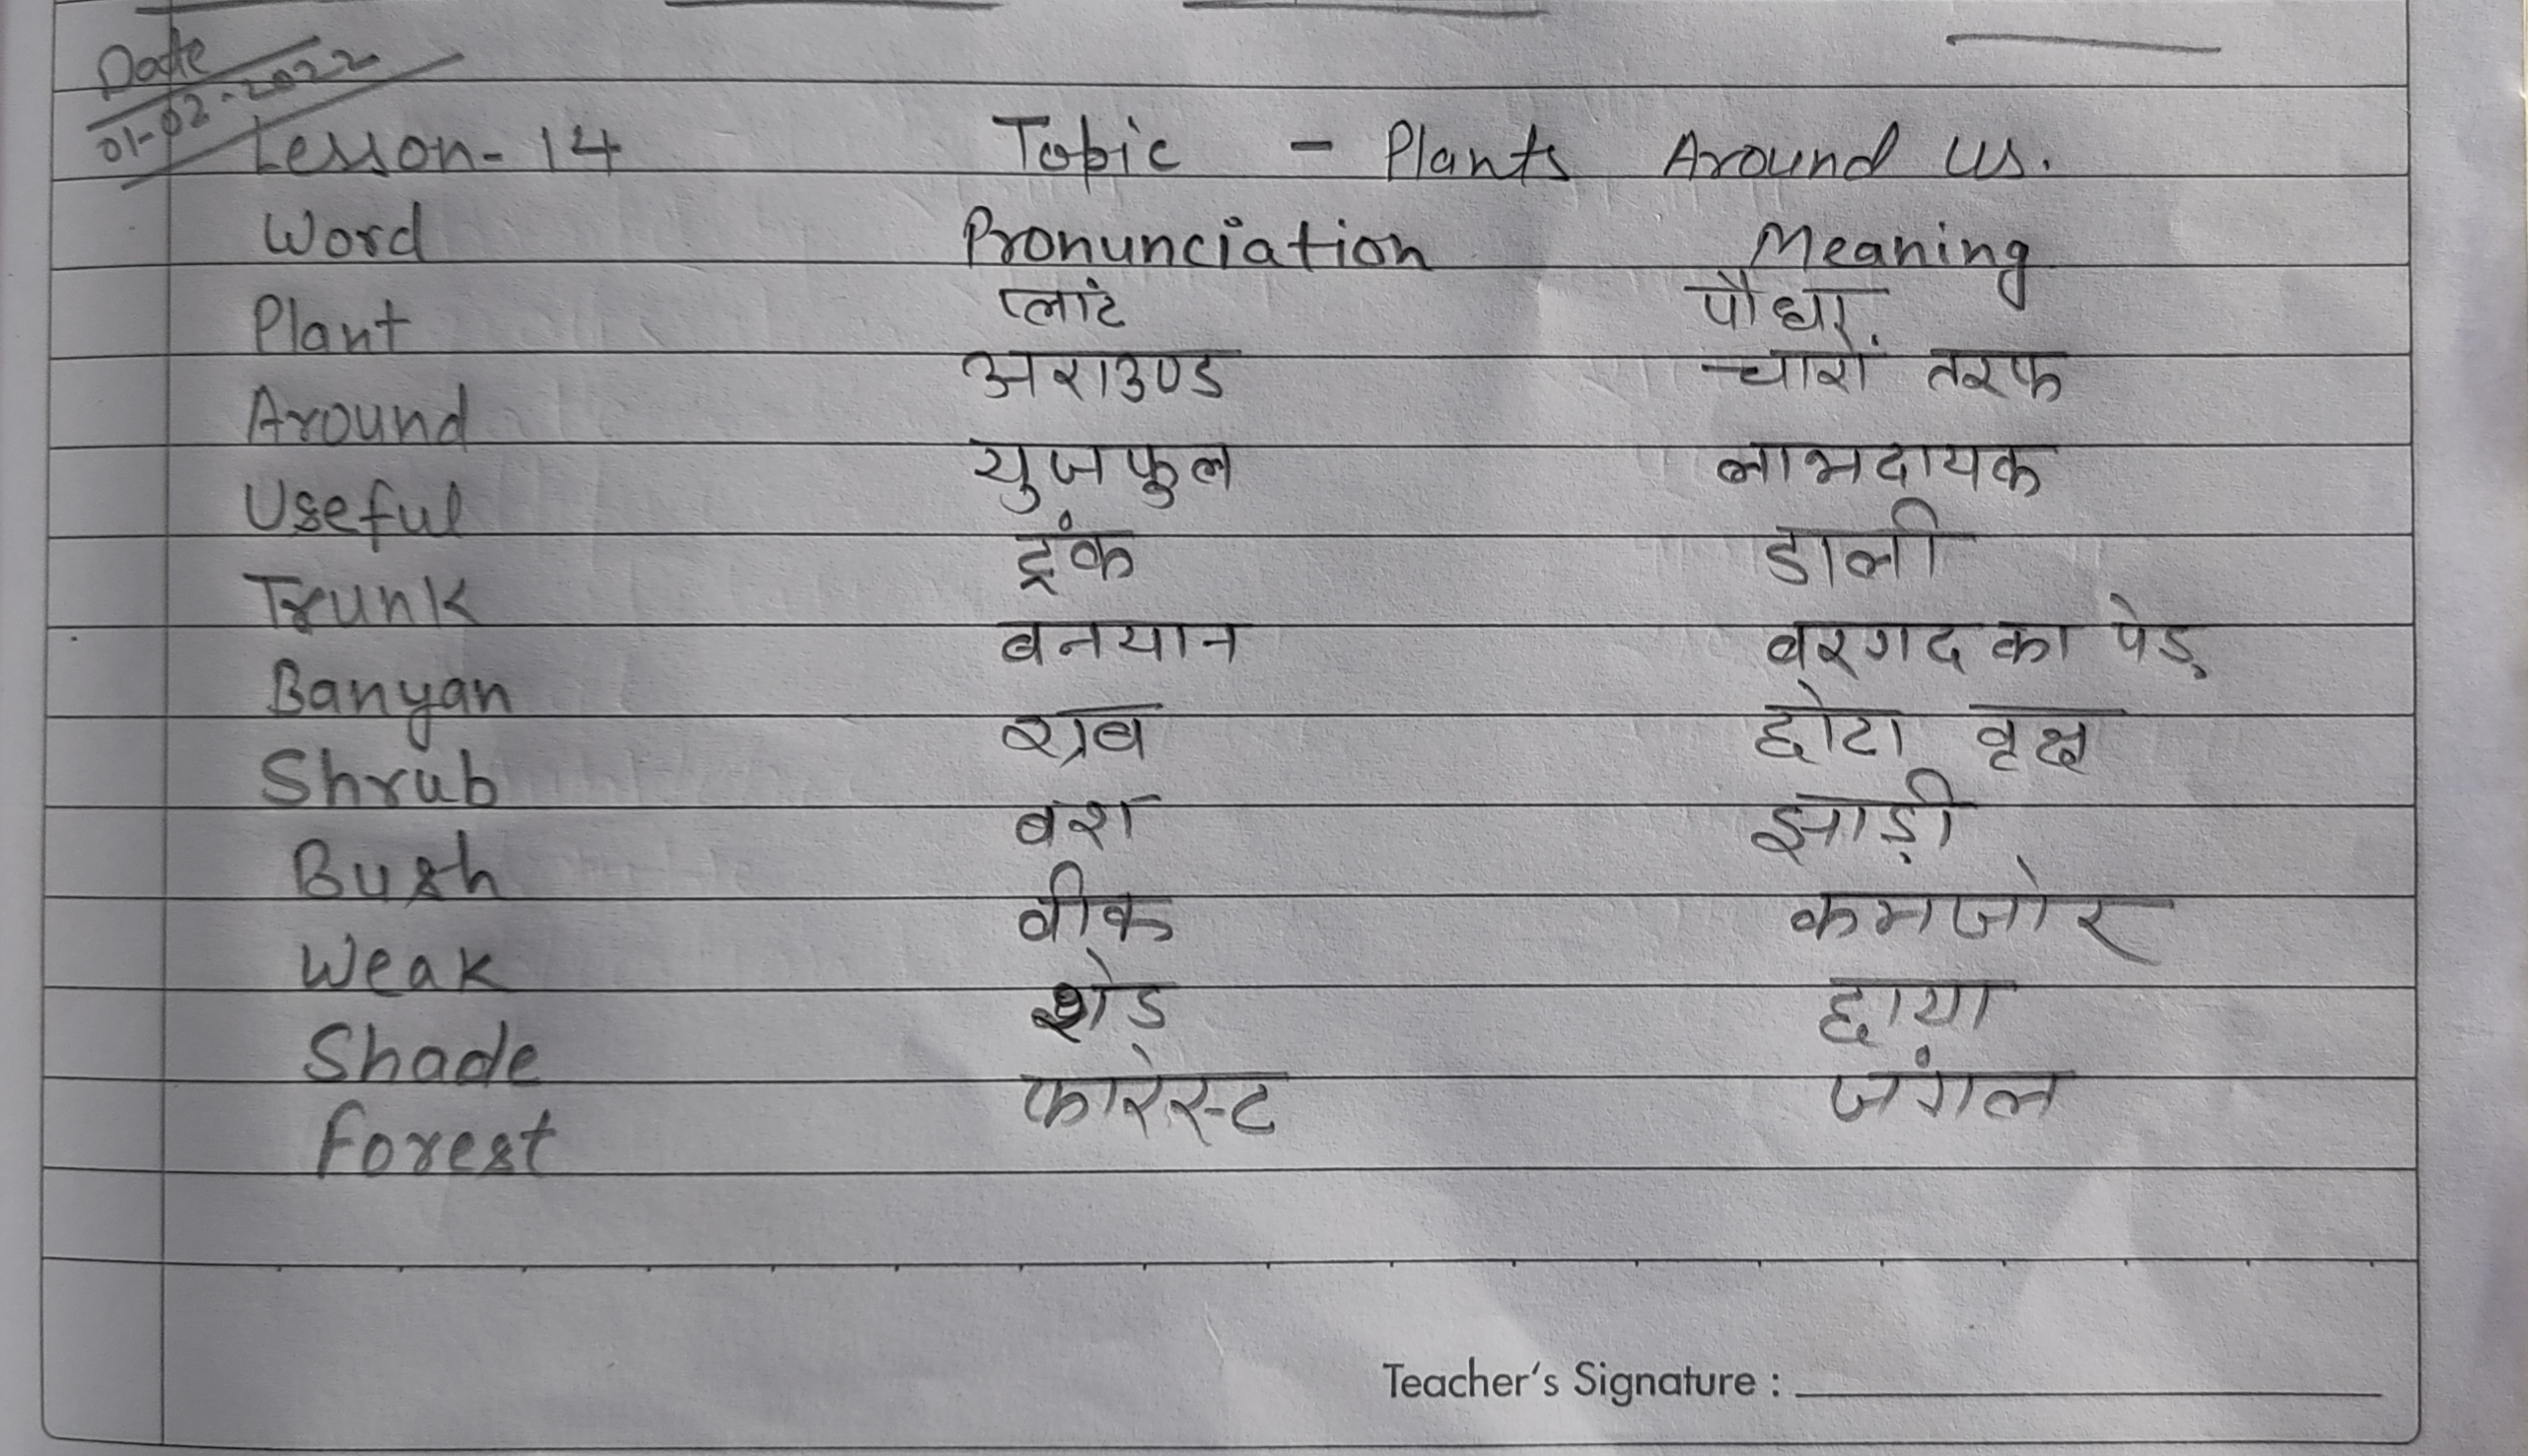 Date
01-02-2022
Lesson-14 Topic - Plants Around us.
Word Pronunciation Meaning
Plant प्लांट पौधा
Around अराउण्ड चारों तरफ
Useful युजफुल लाभदायक
Trunk ट्रंक डाली
Banyan बनयान बरगद का पेड़
Shrub श्रब छोटा वृक्ष
Bush बश झाड़ी
Weak वीक कमजोर
Shade शेड छाया
Forest फारेस्ट जंगल
Teacher's Signature :